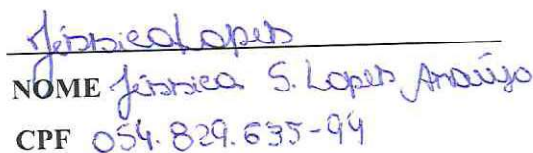 Jéssica Lopes
NOME Jéssica S. Lopes Araújo
CPF 054.829.635-94